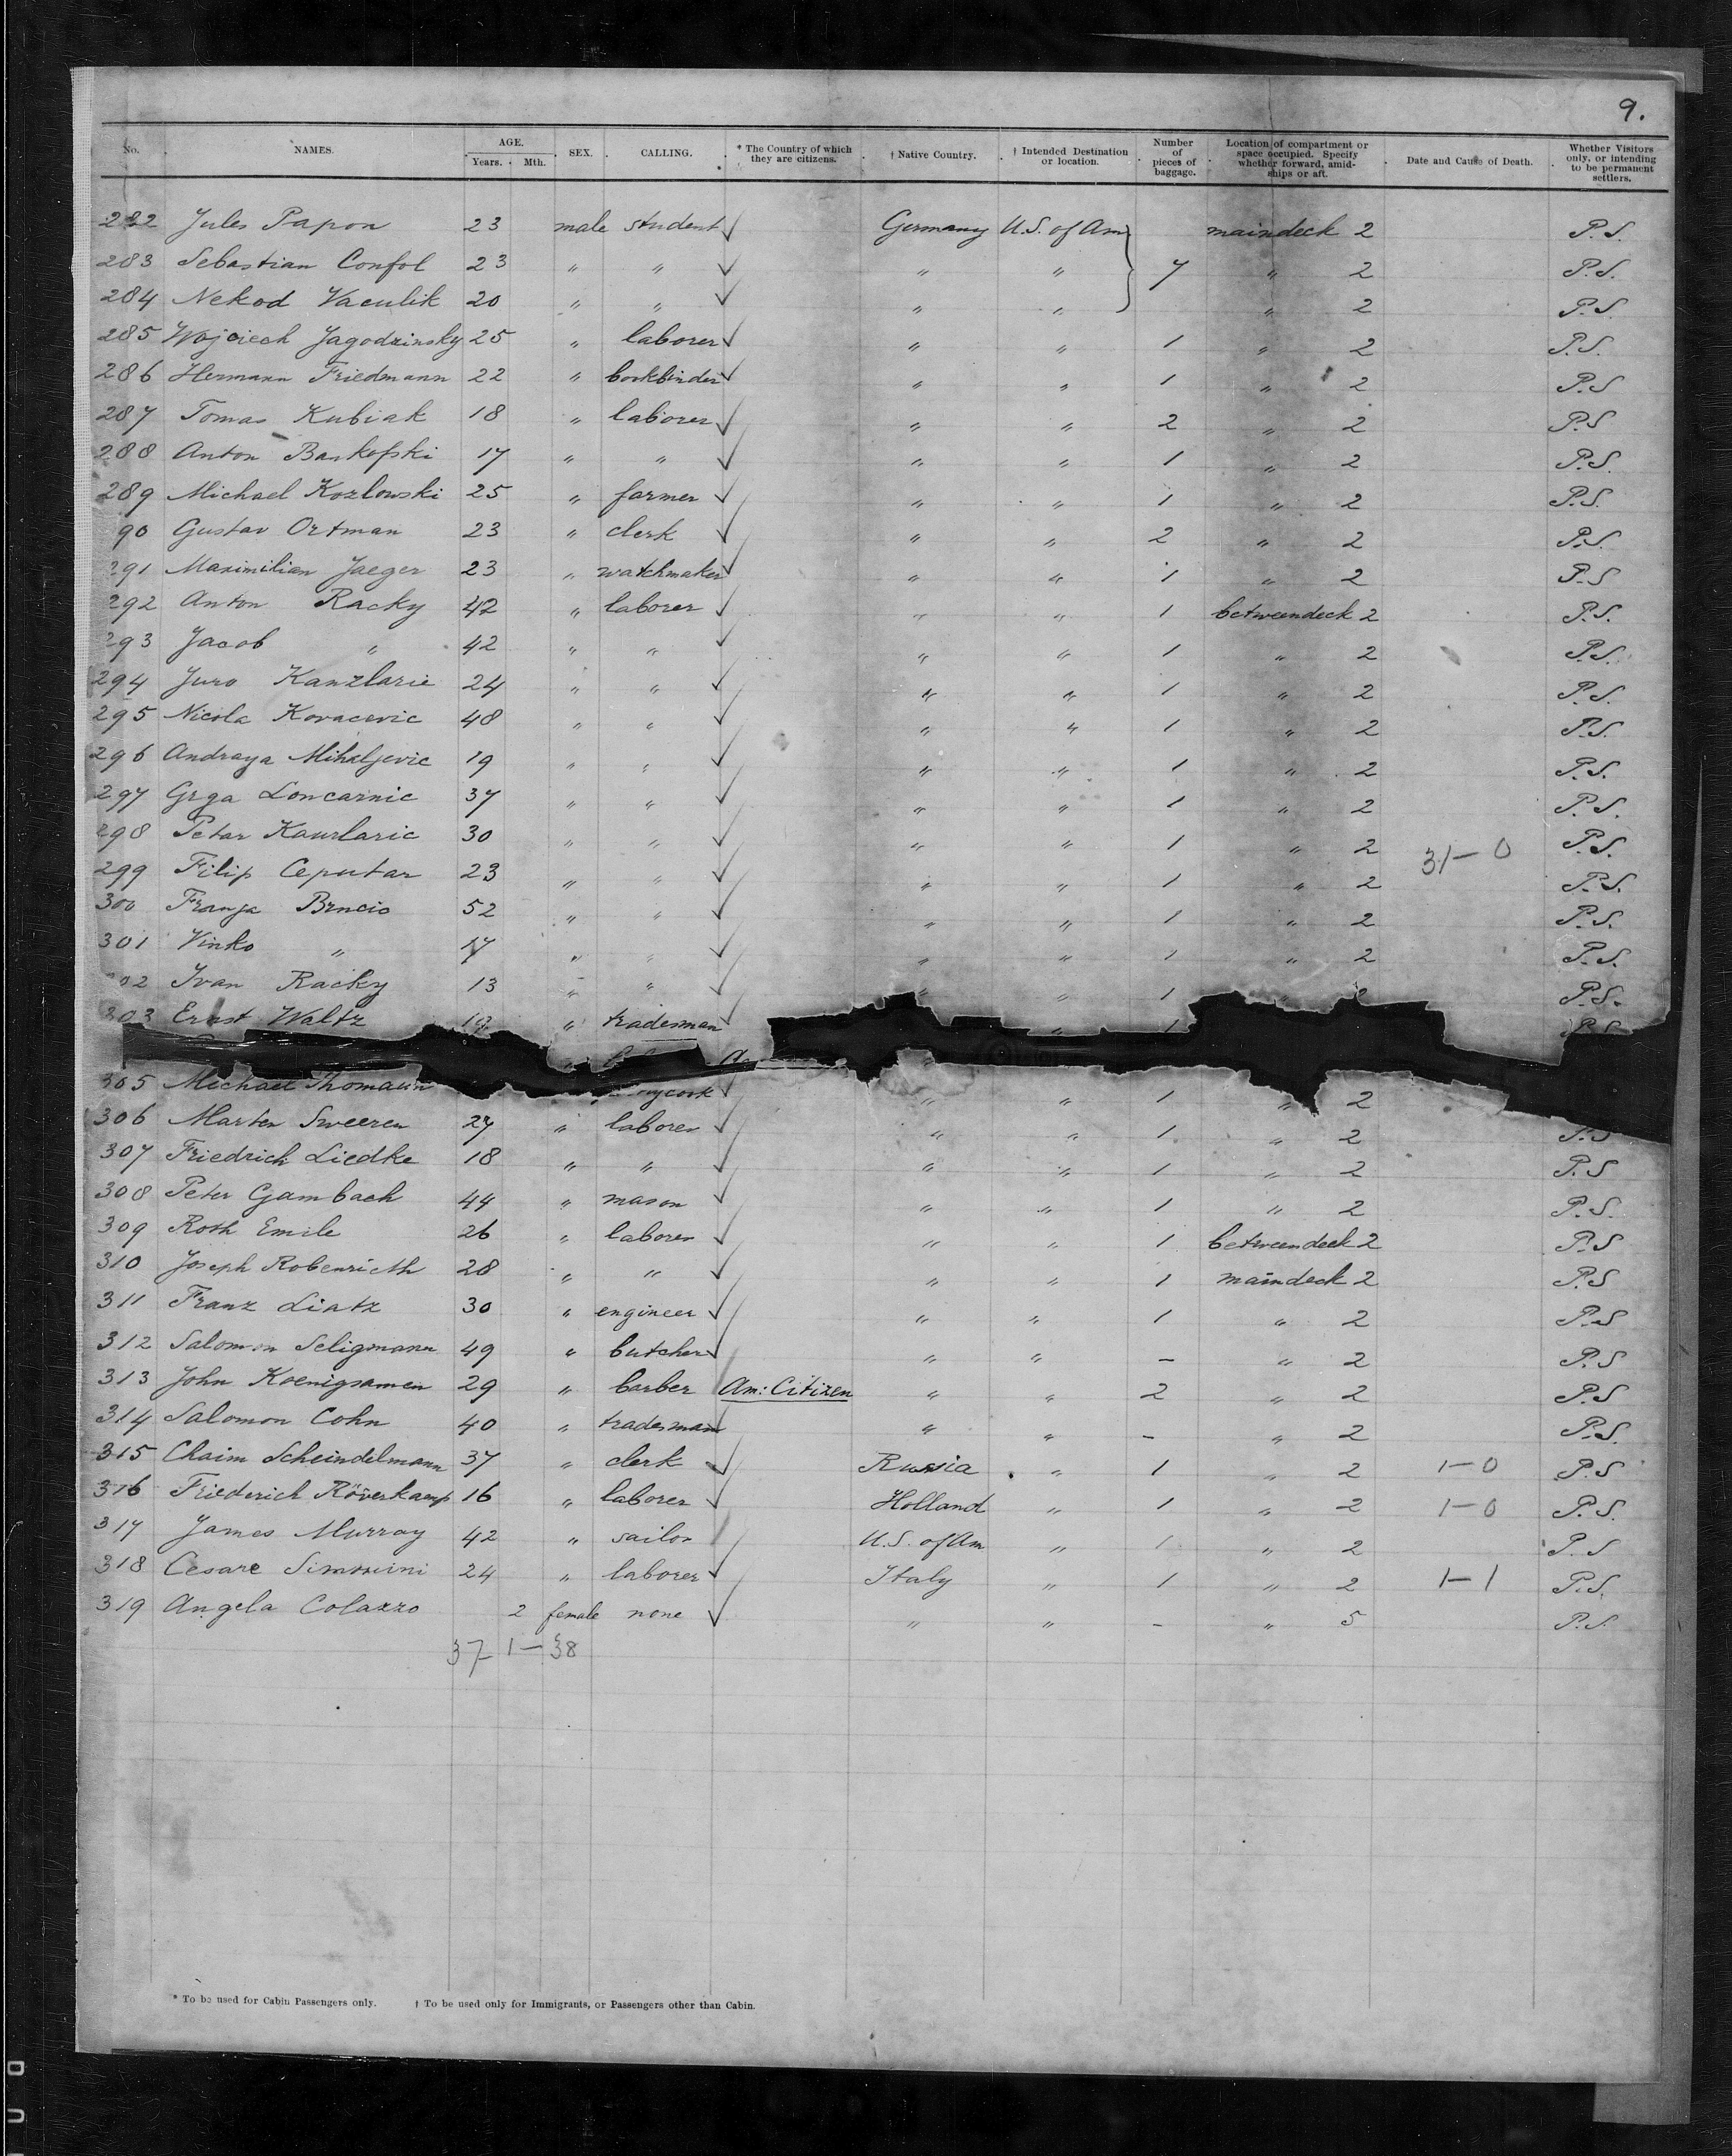 9.
No. NAMES. AGE. Years. Mth. SEX. CALLING. * The Country of which they are citizens. † Native Country. † Intended Destination or location. Number of pieces of baggage. Location of compartment or space occupied. Specify whether forward, amidships or aft. Date and Cause of Death. Whether Visitors only, or intending to be permanent settlers.
282 Jules Papon 23 male student ✓ Germany U.S. of Am maindeck 2 P.S.
283 Sebastian Confol 23 " " ✓ " " 7 " 2 P.S.
284 Nekod Vaculik 20 " " ✓ " " " 2 P.S.
285 Wojciech Jagodzinsky 25 " laborer ✓ " " 1 " 2 P.S.
286 Hermann Friedmann 22 " bookbinder ✓ " " 1 " 2 P.S
287 Tomas Kubiak 18 " laborer ✓ " " 2 " 2 P.S
288 Anton Baskofski 17 " " ✓ " " 1 " 2 P.S.
289 Michael Kozlowski 25 " farmer ✓ " " 1 " 2 P.S.
90 Gustav Ortman 23 " clerk ✓ " " 2 " 2 P.S.
291 Maximilian Jaeger 23 " watchmaker ✓ " " 1 " 2 P.S
292 Anton Racky 42 " laborer ✓ " " 1 betweendeck 2 P.S.
293 Jacob " 42 " " ✓ " " 1 " 2 P.S.
294 Juro Kanzlarie 24 " " ✓ " " 1 " 2 P.S.
295 Nicola Kovacevic 48 " " ✓ " " 1 " 2 P.S.
296 Andraya Mihaljevic 19 " " ✓ " " 1 " 2 P.S.
297 Grga Loncarnic 37 " " ✓ " " 1 " 2 P.S.
298 Petar Kaurlaric 30 " " ✓ " " 1 " 2 31-0 P.S.
299 Filip Ceputar 23 " " ✓ " " 1 " 2 P.S.
300 Franja Brncic 52 " " ✓ " " 1 " 2 P.S.
301 Vinko " 17 " " ✓ " " 1 " 2 P.S.
02 Ivan Racky 13 " " ✓ " " 1 " 2 P.S.
303 Ernst Waltz " tradesman ✓ " 1 P.S
305 Michael Thomann ✓ " " 1 " 2
306 Marten Sweeren 27 " laborer ✓ " " 1 " 2 P.S
307 Friedrich Liedke 18 " " ✓ " " 1 " 2 P.S
308 Peter Gambach 44 " mason ✓ " " 1 " 2 P.S.
309 Roth Emile 26 " laborer ✓ " " 1 betweendeck 2 P.S
310 Joseph Robenrieth 28 " " ✓ " " 1 maindeck 2 P.S
311 Franz Liatz 30 " engineer ✓ " " 1 " 2 P.S
312 Salomon Seligmann 49 " butcher ✓ " " - " 2 P.S
313 John Koenigsamen 29 " barber Am: Citizen " " 2 " 2 P.S
314 Salomon Cohn 40 " tradesman " " - " 2 P.S.
315 Chaim Scheindelmann 37 " clerk ✓ Russia " 1 " 2 1-0 P.S
316 Friederich Röverkamp 16 " laborer ✓ Holland " 1 " 2 1-0 P.S.
317 James Murray 42 " sailor U.S. of Am " 1 " 2 P.S
318 Cesare Simonini 24 " laborer ✓ Italy " 1 " 2 1-1 P.S.
319 Angela Colazzo 2 female none ✓ " " - " 5 P.S.
37 1-38
* To be used for Cabin Passengers only. † To be used only for Immigrants, or Passengers other than Cabin.